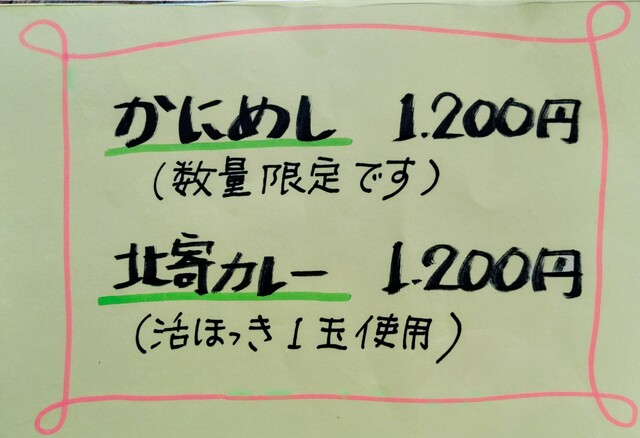 かにめし 1.200円
(数量限定です)
北寄カレー 1.200円
(活ほっき1玉使用)